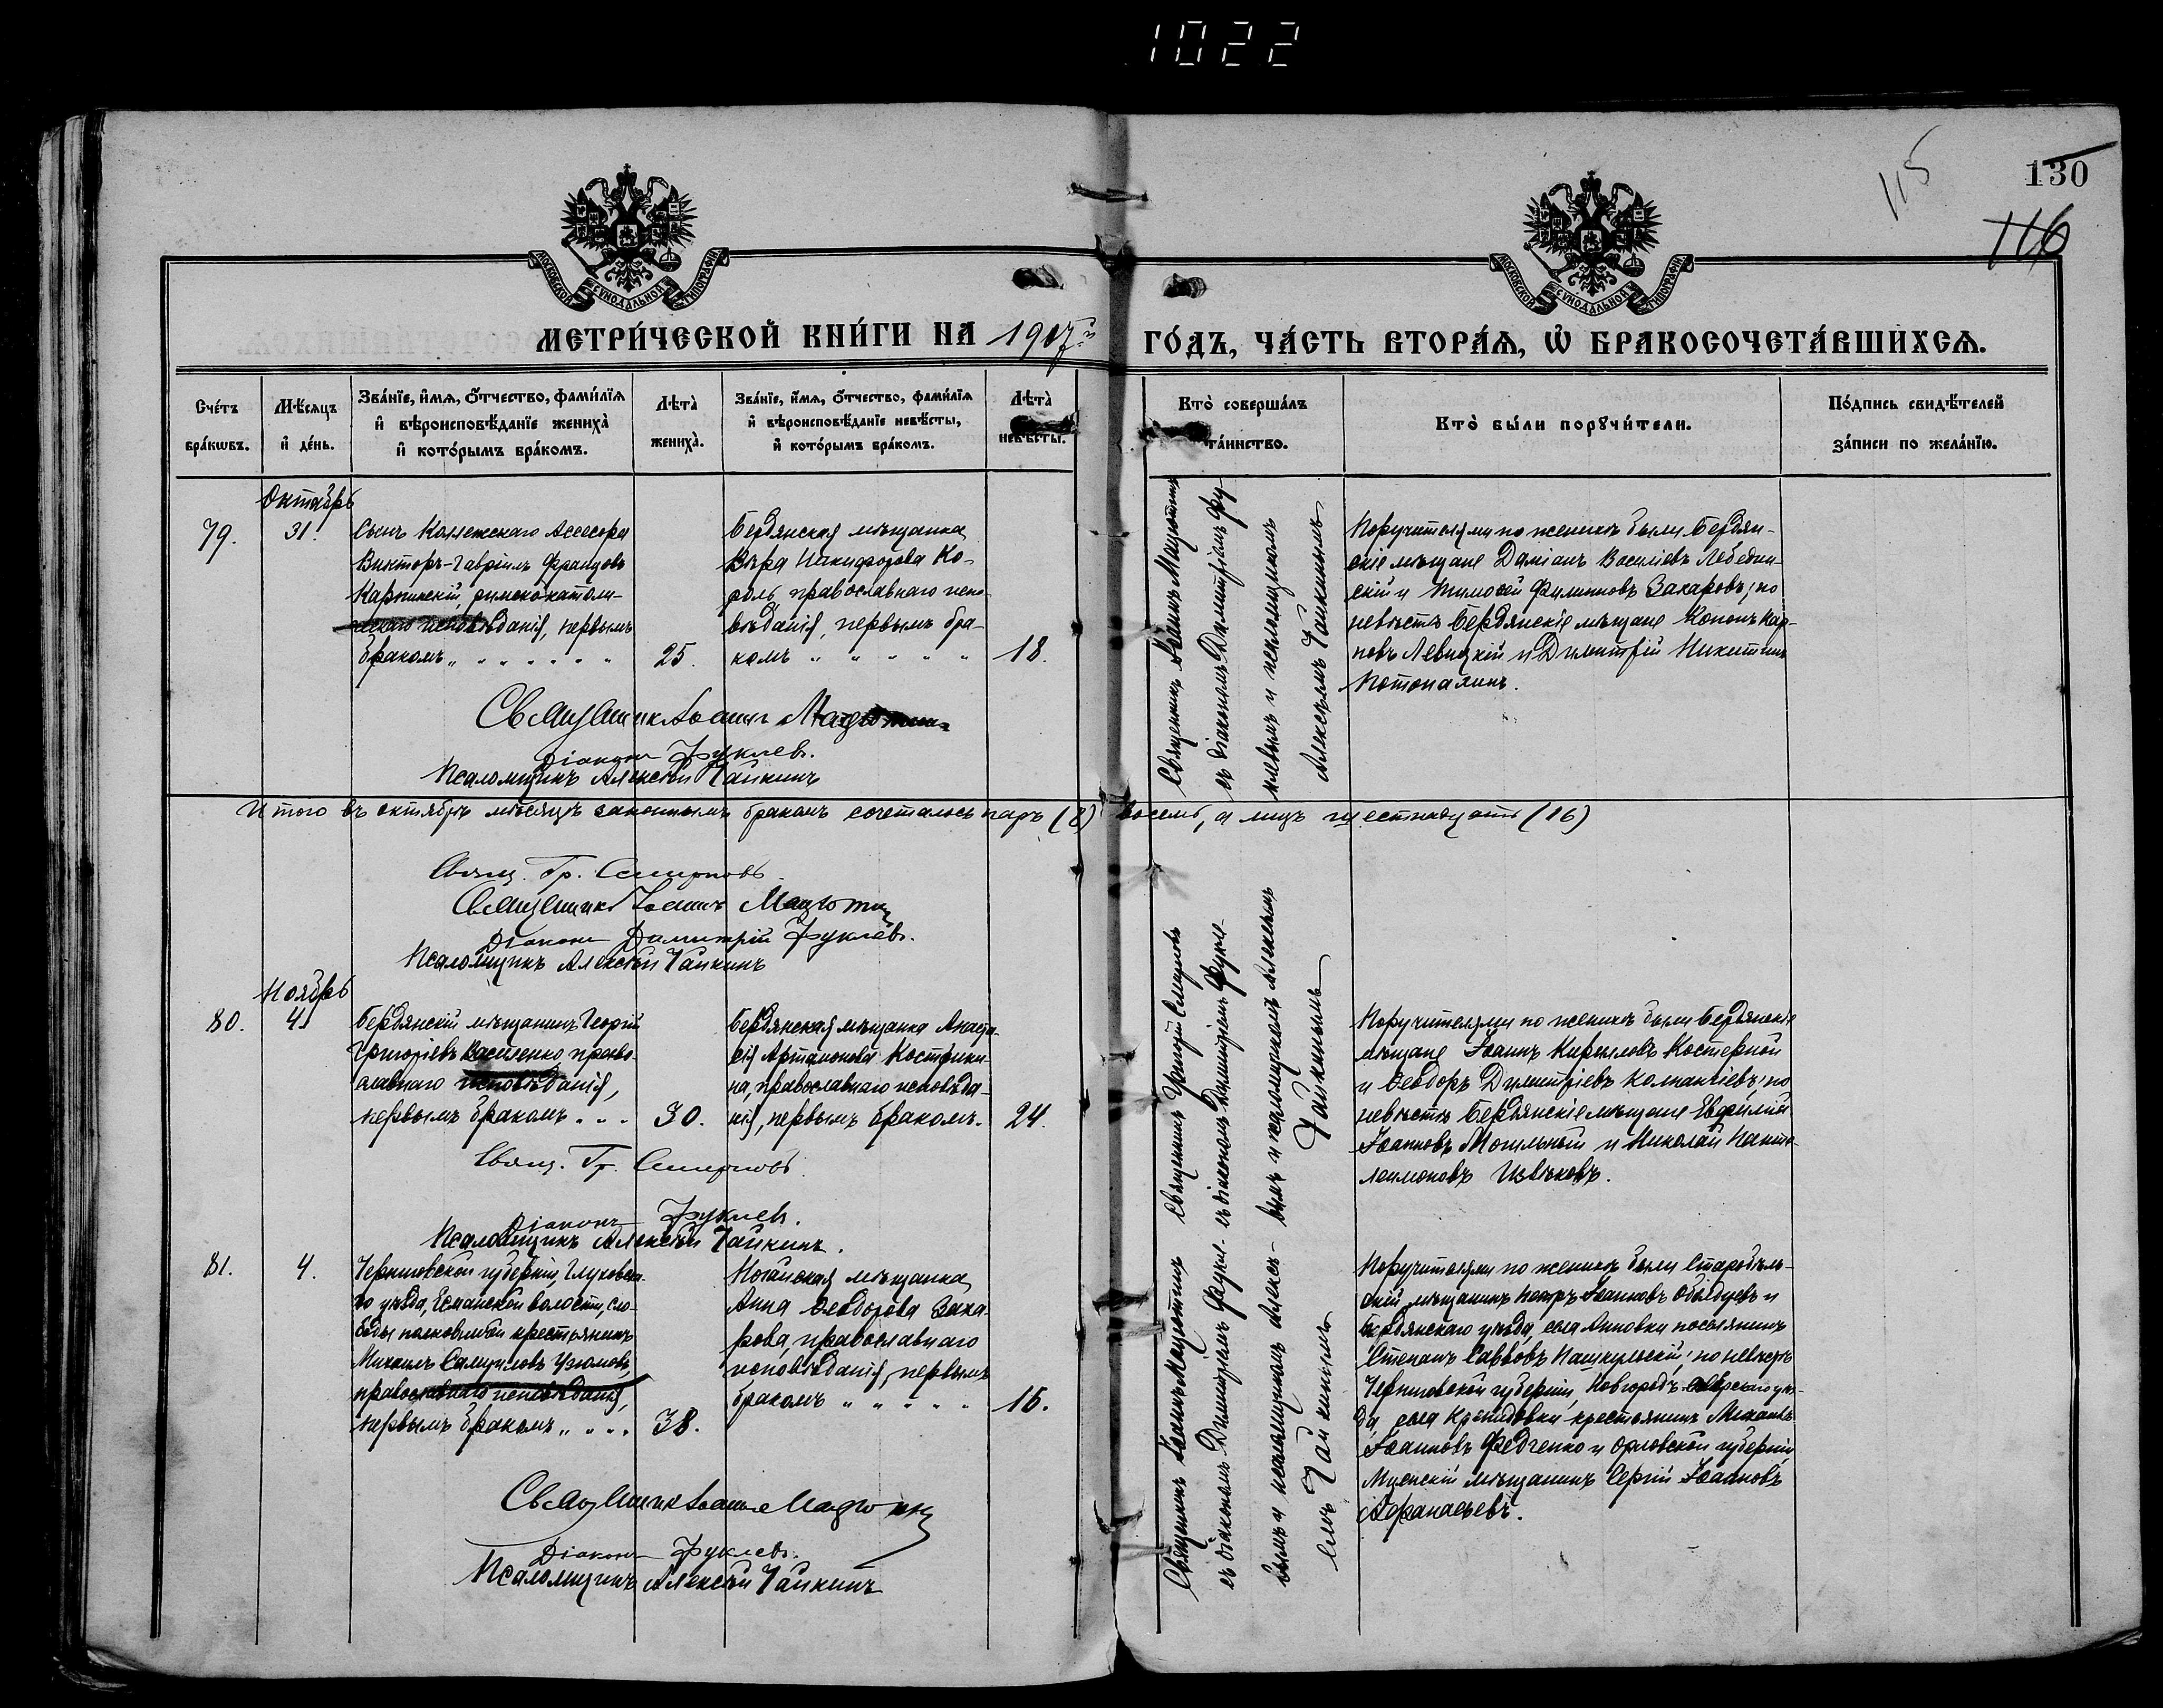 1022
115
130
116
МОСКОВСКОЙ СѴНОДАЛЬНОЙ ТИПОГРАФІИ
МОСКОВСКОЙ СѴНОДАЛЬНОЙ ТИПОГРАФІИ
МЕТРИ́ЧЕСКОЙ КНИ́ГИ НА 1907й ГО́ДЪ, ЧА́СТЬ ВТОРА́Я, Ѡ҆ БРАКОСОЧЕТА́ВШИХСЯ.
Сче́тъ бра́кѡвъ.
Мѣ́сяцъ и҆ де́нь.
Зва́нїе, и҆́мя, ѻ҆́тчество, фами́лїя и҆ вѣроисповѣ́данїе жениха̀ и҆ кото́рымъ бра́комъ.
Лѣта̀ жениха̀.
Зва́нїе, и҆́мя, ѻ҆́тчество, фами́лїя и҆ вѣроисповѣ́данїе невѣ́сты, и҆ кото́рымъ бра́комъ.
Лѣта̀ невѣ́сты.
Кто̀ соверша́лъ та́инство.
Кто̀ бы́ли порꙋчи́тели.
По́дпись свидѣ́телей за́писи по жела́нїю.
Октябрь
79.
31.
Сынъ Коллежскаго Ассесора
Викторъ-Гавріилъ Францовъ
Карпинскій, римскокатоли-
ческаго исповѣданія, первымъ
бракомъ „ „ „ „ „ „
25.
Бердянская мѣщанка
Вѣра Никифорова Ко-
роль, православнаго испо-
вѣданія, первымъ бра-
комъ „ „ „ „ „
18.
Священникъ Іоаннъ Мацютинъ
съ діакономъ Димитріемъ Фу-
клевымъ и псаломщикомъ
Алексѣемъ Чайкинымъ
Поручителями по женихѣ были Бердян-
скіе мѣщане Даміанъ Василіевъ Лебедин-
скій и Тимоѳей Филипповъ Захаровъ; по
невѣстѣ Бердянскіе мѣщане Кононъ Кар-
повъ Левицкій и Димитрій Никитинъ
Потопалинъ.
Священникъ Іоаннъ Мацютинъ
Діаконъ Фуклевъ.
Псаломщикъ Алексѣй Чайкинъ
Итого въ октябрѣ мѣсяцѣ законнымъ бракомъ сочеталось паръ (8) восемь, а лицъ шестнадцать (16)
Свящ. Гр. Смирновъ
Священникъ Іоаннъ Мацютинъ
Діаконъ Димитрій Фуклевъ.
Псаломщикъ Алексѣй Чайкинъ
Ноябрь
80.
4.
Бердянскій мѣщанинъ Георгій
Григоріевъ Василенко право-
славнаго исповѣданія,
первымъ бракомъ „ „ „
30.
Бердянская мѣщанка Анаста-
сія Артамонова Кострики-
на, православнаго исповѣда-
нія, первымъ бракомъ.
24.
Священникъ Григорій Смирновъ
съ діакономъ Димитріемъ Фукле-
вымъ и псаломщикомъ Алексѣемъ
Чайкинымъ
Поручителями по женихѣ были Бердянскіе
мѣщане Іоаннъ Кирилловъ Костерной
и Ѳеодоръ Димитріевъ ; по
невѣстѣ Бердянскіе мѣщане Евфимій
Іоанновъ Могильный и Николай Панте-
леимоновъ .
Свящ. Гр. Смирновъ.
Діаконъ Фуклевъ.
Псаломщикъ Алексѣй Чайкинъ.
81.
4.
Черниговской губерніи, Глуховска-
го уѣзда, Есманской волости, сло-
боды крестьянинъ
Михаилъ Самуиловъ Узюмовъ,
православнаго исповѣданія,
первымъ бракомъ „ „ „ „
38.
Ногайская мѣщанка
Анна Ѳеодорова Заха-
рова, православнаго
исповѣданія, первымъ
бракомъ „ „ „ „ „
16.
Священникъ Іоаннъ Мацютинъ
съ діакономъ Димитріемъ Фукле-
вымъ и псаломщикомъ Алексѣ-
емъ Чайкинымъ
Поручителями по женихѣ были Старобѣль-
скій мѣщанинъ Петръ Іоанновъ Обыдуевъ и
Бердянскаго уѣзда, села Анновки поселянинъ
Степанъ Савовъ Пашкульскій; по невѣстѣ
Черниговской губерніи, Новгородъ-Сѣверскаго уѣз-
да, села крестьянинъ Михаилъ
Іоанновъ Федченко и Орловской губерніи
Мценскій мѣщанинъ Сергій Іоанновъ
Афанасьевъ.
Священникъ Іоаннъ Мацютинъ
Діаконъ Фуклевъ.
Псаломщикъ Алексѣй Чайкинъ